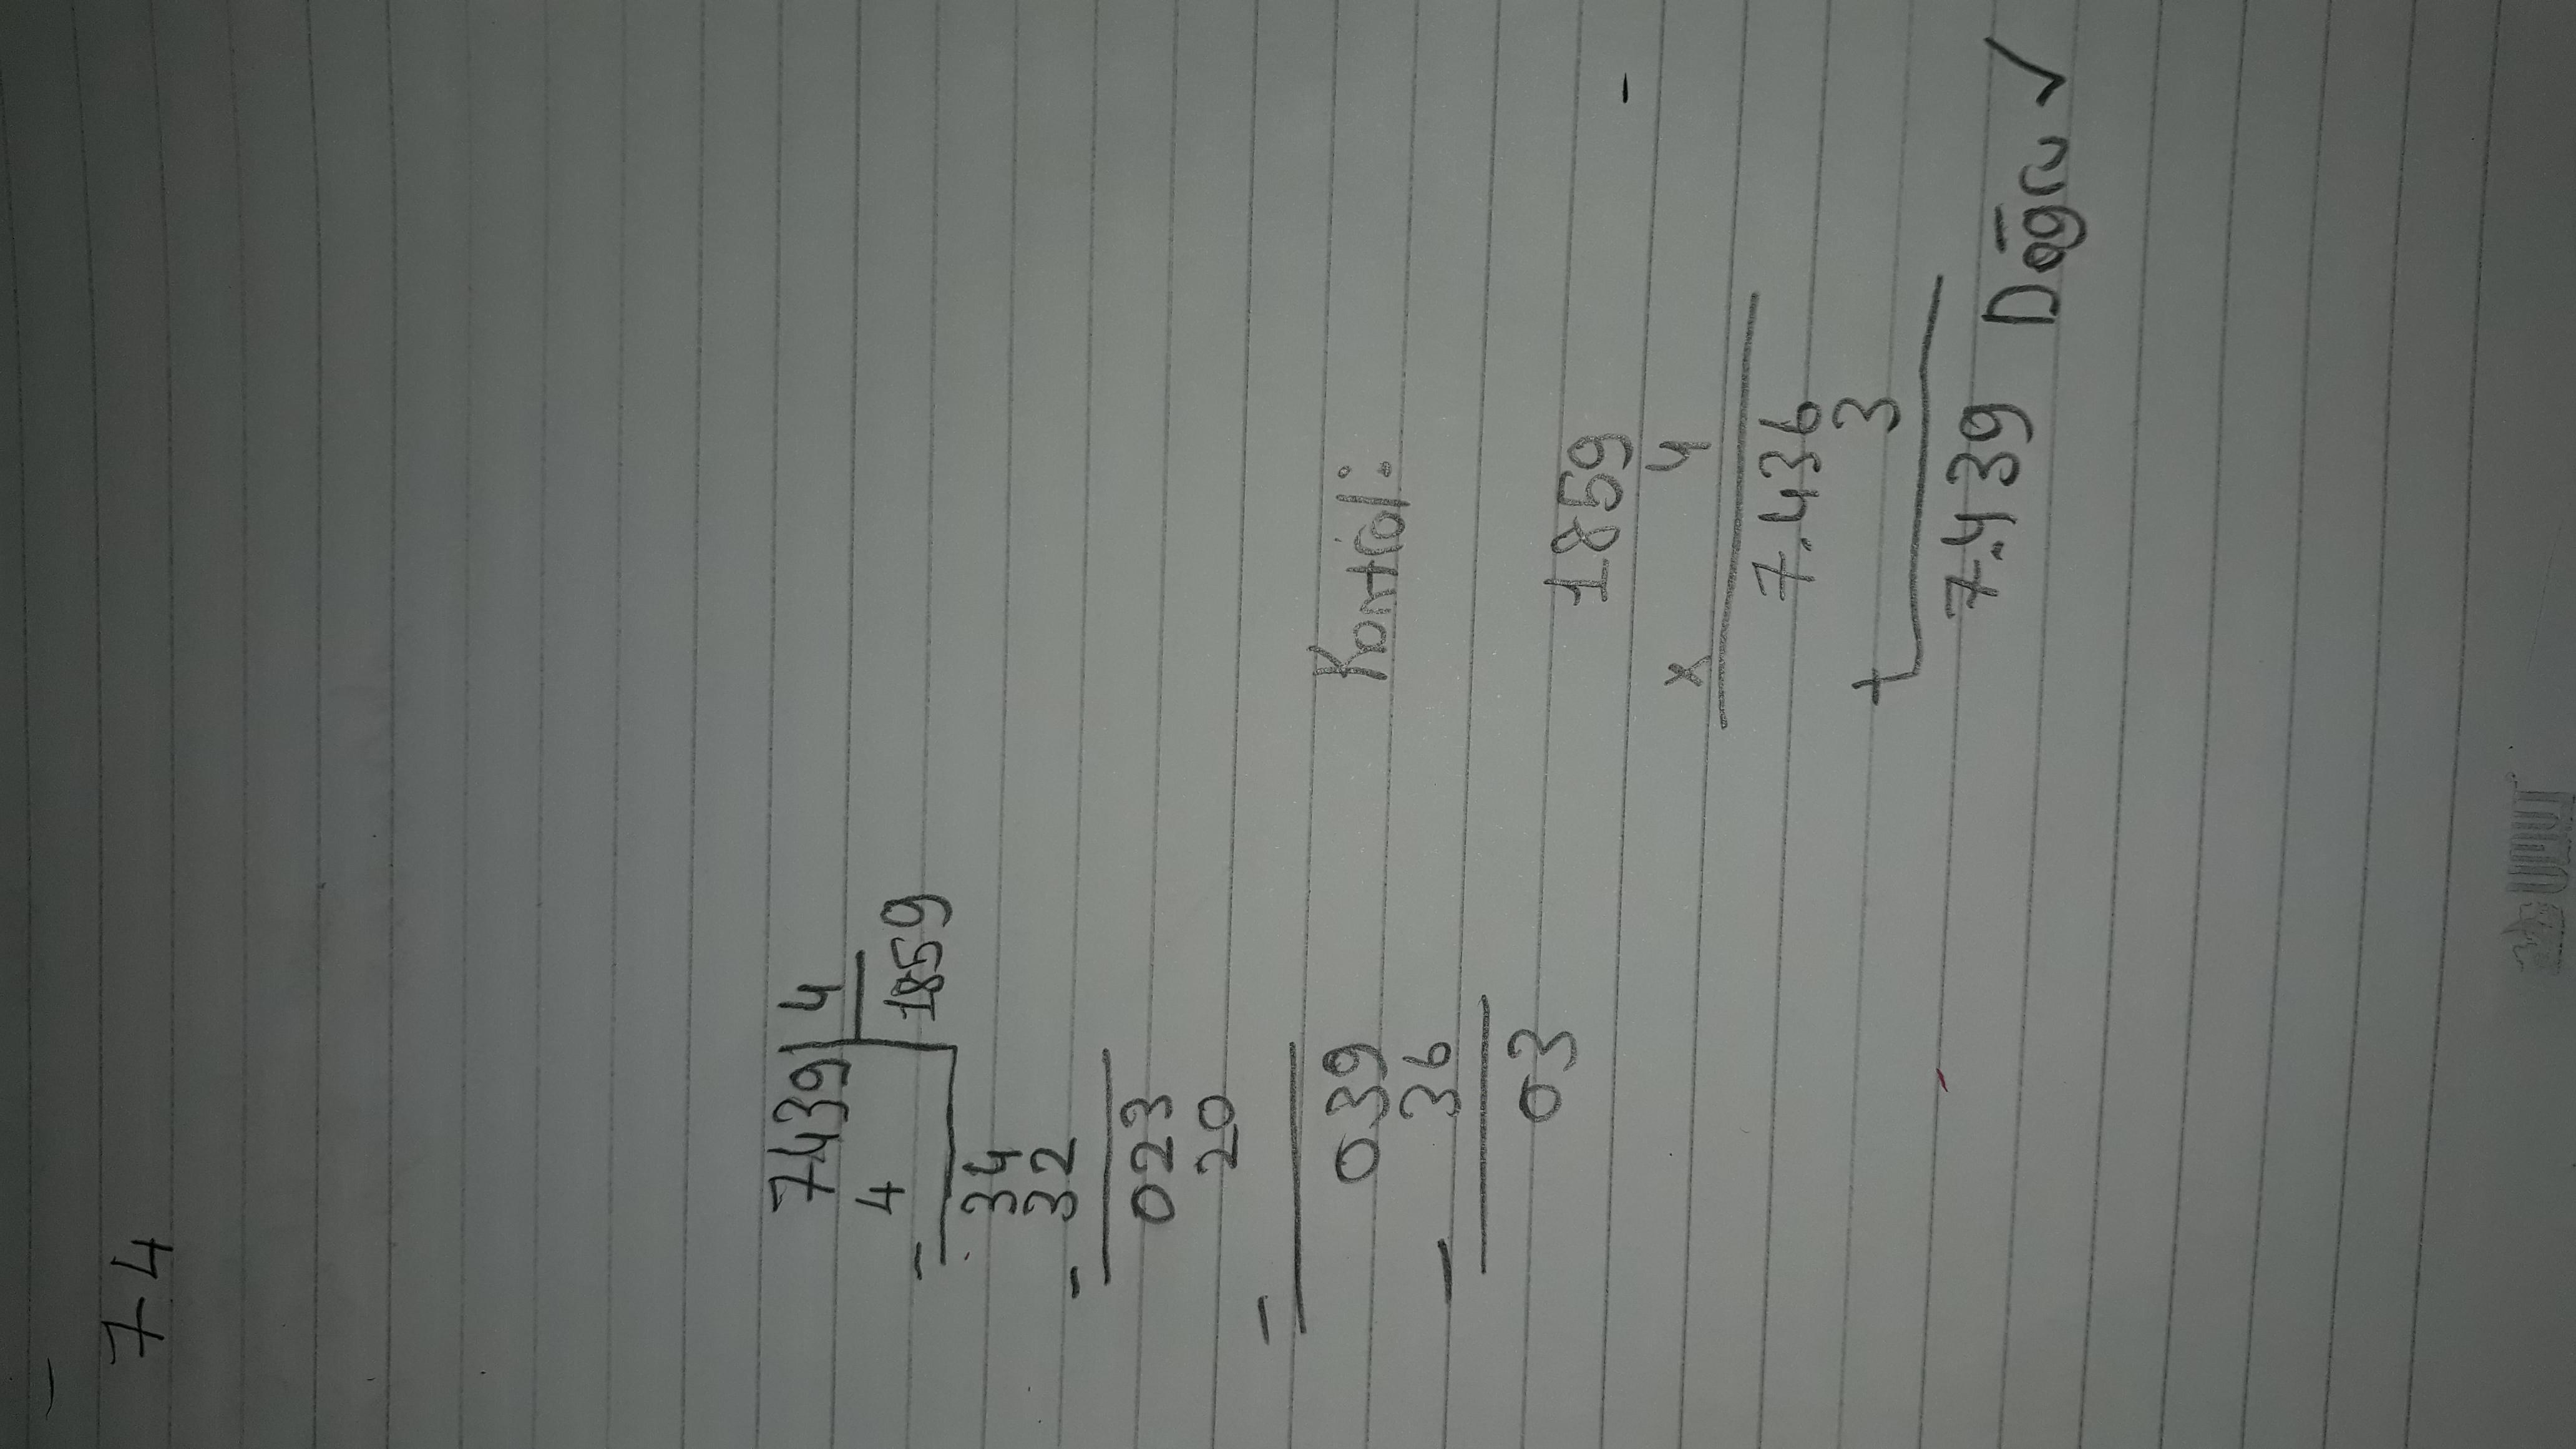 7-4
7439 4
4 1859
-
34
- 32
023
- 20
039
- 36
03
Kontrol:
1859
x 4
7.436
+ 3
7.439 Doğru ✓
umur